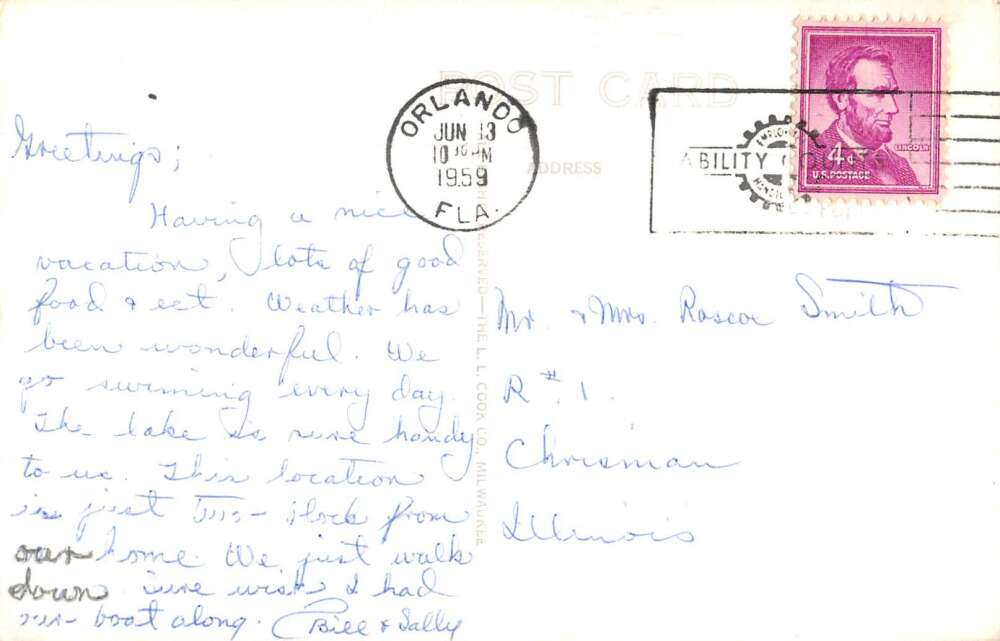 POST CARD
ORLANDO
JUN 13
10 30 M
1959
FLA.
ABILITY
LINCOLN
4¢
U.S. POSTAGE
ADDRESS
RESERVED—THE L. L. COOK CO., MILWAUKEE
Greetings;
Having a nice
vacation, lots of good
food & ect. Weather has
been wonderful. We
go swimming every day.
The lake is nice handy
to us. This location
is just block from
our home. We just walk
down. Sure wish I had
our boat along. Bill & Sally
Mr. & Mrs. Roscoe Smith
R # 1.
Chrisman
Illinois